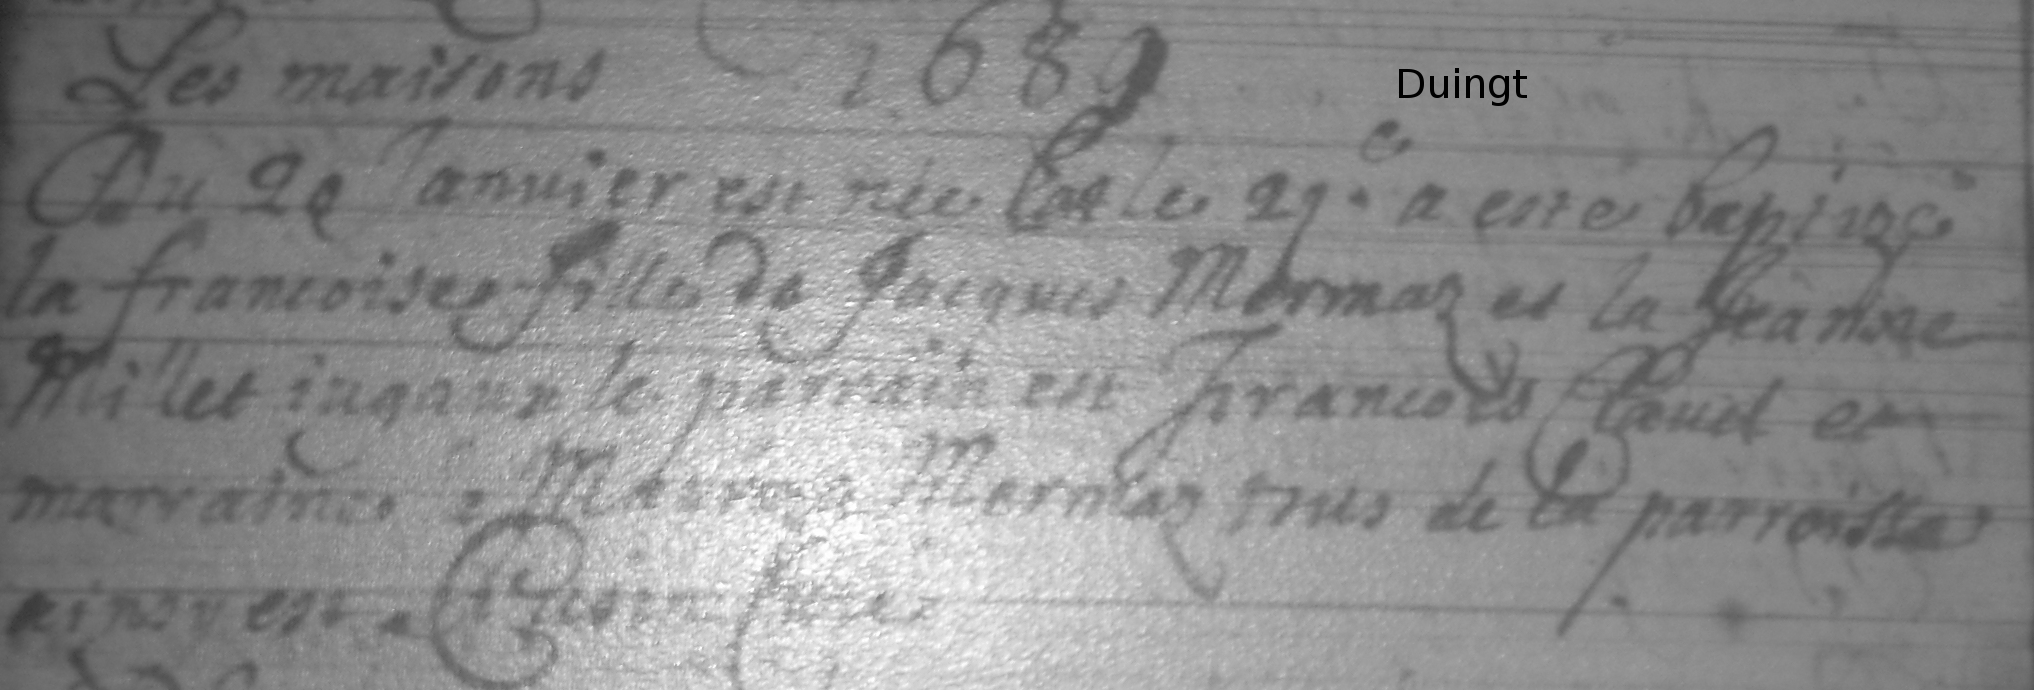 Les maisons 1689 Duingt
Du 28 Januier est née et le 29.e a esté baptizée
la francoise fille de Jacques Mermaz et la Jeanne
Millet jugaux le parrain est francois et
marraine Mermaz tous de la parroisse
ainsy est Curé